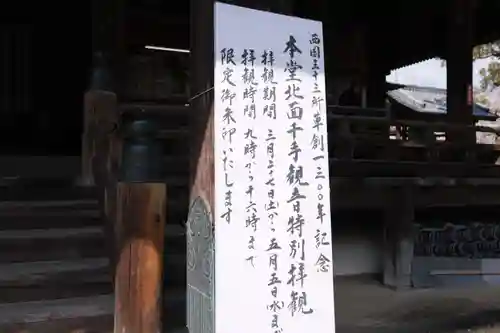 西国三十三所草創一三〇〇年 記念
本堂北面千手観音特別拝観
拝観期間 三月二七日(土)から五月五日(水)まで
拝観時間 九時から十六時まで
限定御朱印いたします